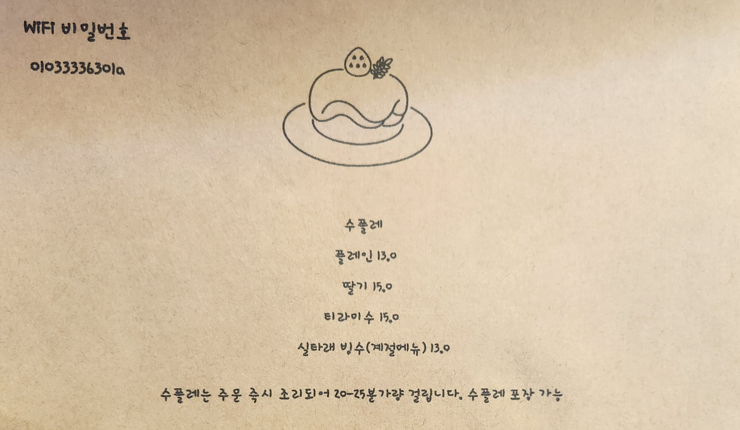 WiFi 비밀번호
01033336301a
수플레
플레인 13.0
딸기 15.0
티라미수 15.0
실타래 빙수(계절메뉴) 13.0
수플레는 주문 즉시 조리되어 20-25분가량 걸립니다. 수플레 포장 가능